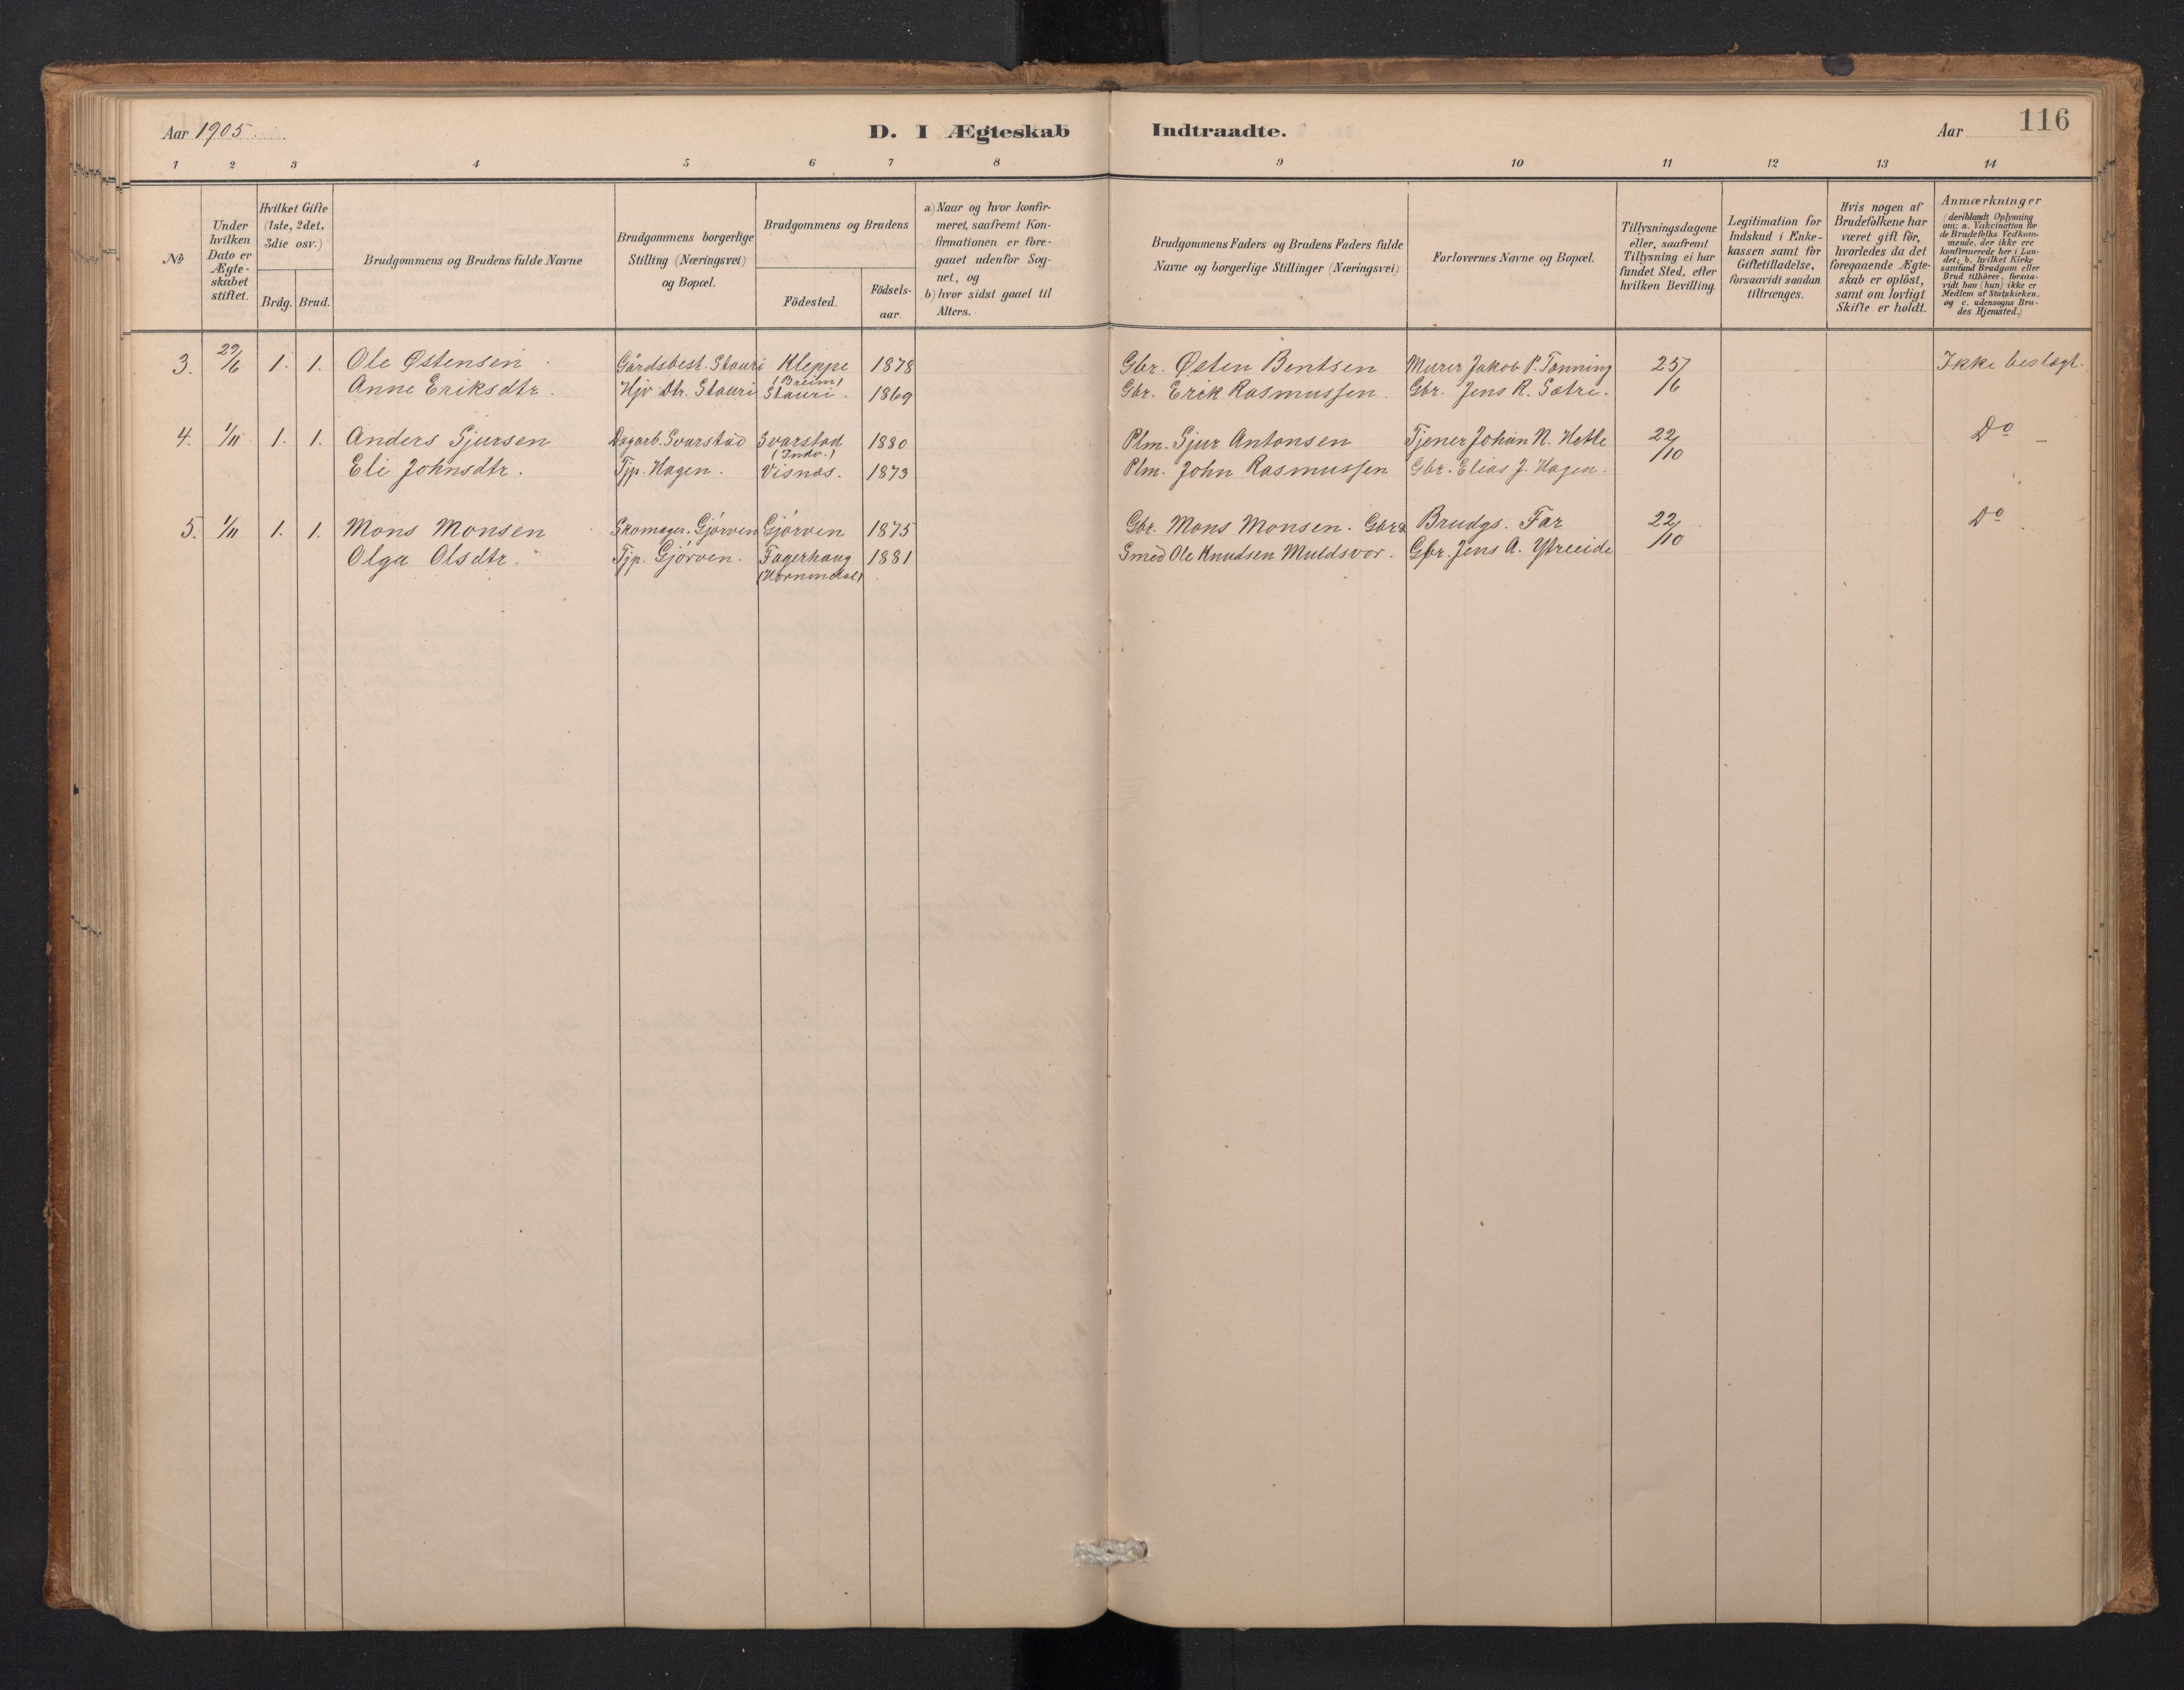 Aar 1905.
D. I Ægteskab
Indtraadte.
Aar
116
1 2 3 4 5 6 7 8 9 10 11 12 13 14
No
Under
hvilken
Dato er
Ægte-
skabet
stiftet.
Hvilket Gifte
(1ste, 2det,
3die osv.)
Brdg. Brud.
Brudgommens og Brudens fulde Navne
Brudgommens borgerlige
Stilling (Næringsvei)
og Bopæl.
Brudgommens og Brudens
Födested.
Födsels-
aar.
a) Naar og hvor konfir-
meret, saafremt Kon-
firmationen er fore-
gaaet udenfor Sog-
net, og
b) hvor sidst gaaet til
Alters.
Brudgommens Faders og Brudens Faders fulde
Navne og borgerlige Stillinger (Næringsvei)
Forlovernes Navne og Bopæl.
Tillysningsdagene
eller, saafremt
Tillysning ei har
fundet Sted, efter
hvilken Bevilling.
Legitimation for
Indskud i Enke-
kassen samt for
Giftetilladelse,
forsaavidt saadan
tiltrænges.
Hvis nogen af
Brudefolkene har
været gift för,
hvorledes da det
foregaaende Ægte-
skab er oplöst,
samt om lovligt
Skifte er holdt.
Anmærkninger
(deriblandt Oplysning
om: a. Vakcination for
de Brudefolks Vedkom-
mende, der ikke ere
konfirmerede her i Lan-
det; b. hvilket Kirke
samfund Brudgom eller
Brud tilhörer, forsaa-
vidt han (hun) ikke er
Medlem af Statskirken,
og c. udensogns Bru-
des Hjemsted.)
3. 29/6 1. 1. Ole Østensen Gårdsbest. Stauri Kleppe 1878 Gbr. Østen Bentsen Murer Jakob P. Tonning 25/6 Ikke beslægt.
(Breim)
Anne Eriksdtr. Hjv Dtr. Stauri Stauri. 1869 Gbr. Erik Rasmussen. Gbr. Jens R. Sætre.
4. 1/11 1. 1. Anders Sjursen Dagarb. Svarstad Svarstad 1880 Plm. Sjur Antonsen Tjener Johan N. Hetle 22/10 Do
(Indv.)
Eli Johnsdtr. Tjp. Hagen. Visnæs. 1873 Plm. John Rasmussen Gbr. Elias J. Hagen.
5. 1/11 1. 1. Mons Monsen Skomager. Gjörven Gjörven 1875 Gbr. Mons Monsen. Brudgs. Far 22/10 Do
Olga Olsdtr. Tjp. Gjörven. Fagerhaug 1881 Smed Ole Knudsen Muldsvor. Gbr. Jens A. Ytreeide
(Hornindal)